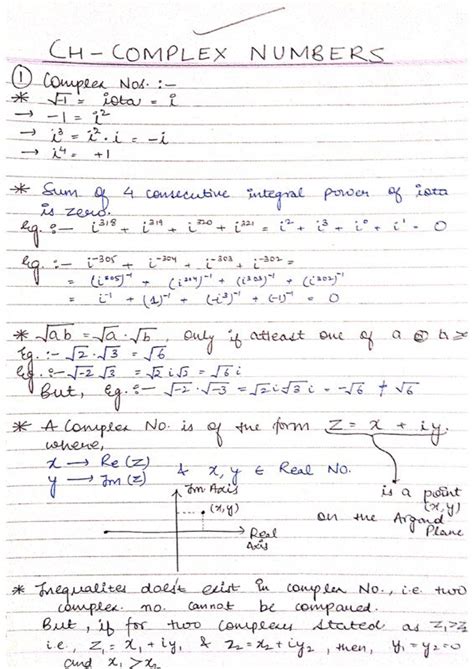 CH - COMPLEX NUMBERS
① Complex Nos. :-
* √-1 = iota = i
→ -1 = i²
→ i³ = i².i = -i
→ i⁴ = +1
* Sum of 4 consecutive integral power of iota
is zero.
Eg. :- i³¹⁸ + i³¹⁹ + i³²⁰ + i³²¹ = i² + i³ + i⁰ + i¹ = 0
Eg. :- i⁻³⁰⁵ + i⁻³⁰⁴ + i⁻³⁰³ + i⁻³⁰² =
= (i³⁰⁵)⁻¹ + (i³⁰⁴)⁻¹ + (i³⁰³)⁻¹ + (i³⁰²)⁻¹
= i⁻¹ + (1)⁻¹ + (-i)⁻¹ + (-1)⁻¹ = 0
* √ab = √a . √b, only if atleast one of a b ≥
Eg. :- √2 . √3 = √6
Eg. :- √-2 √3 = √2 i √3 = √6 i
But, Eg. :- √-2 . √-3 = √2 i √3 i = -√6 ≠ √6
* A Complex No. is of the form Z = x + iy.
where,
x → Re(Z)
y → Im(Z) & x, y ∈ Real No.
is a point
(x, y)
on the Argand
Plane
Im Axis
(x, y)
Real
Axis
* Inequalites doesn't exist in complex No., i.e. two
complex no. cannot be compared.
But, if for two complexes stated as Z₁>Z₂
i.e., Z₁ = x₁ + iy₁ & Z₂ = x₂ + iy₂, then, y₁ = y₂ = 0
and x₁ > x₂